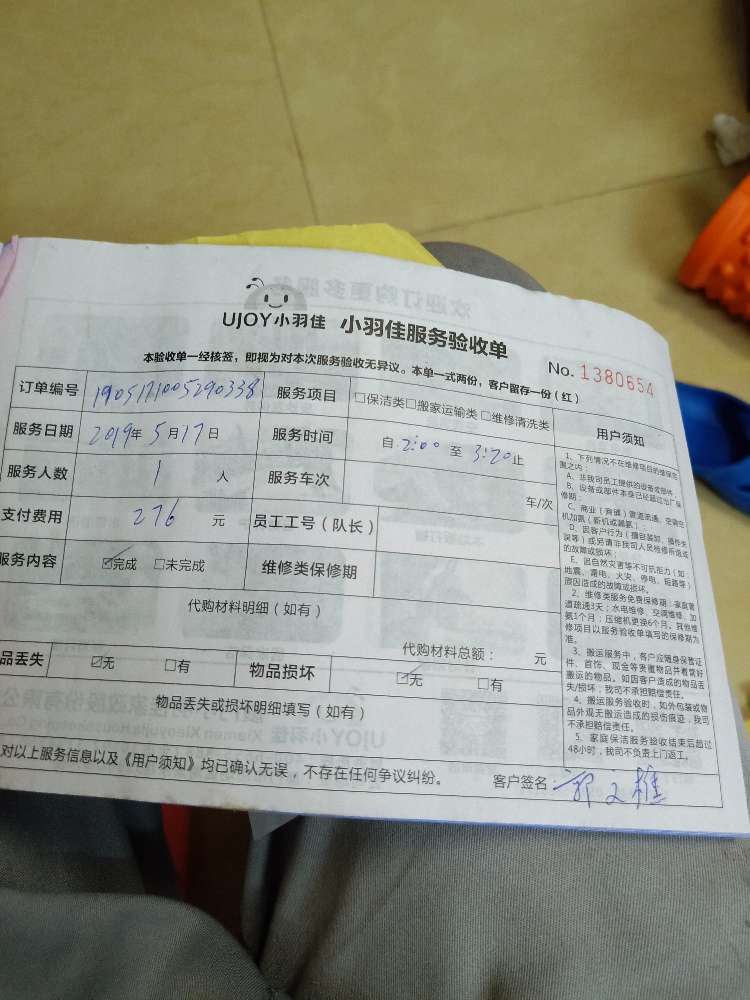 UJOY小羽佳 小羽佳服务验收单
本验收单一经核签，即视为对本次服务验收无异议。本单一式两份，客户留存一份（红）
No. 1380654
订单编号 1905171005290338 服务项目 □保洁类□搬家运输类□维修清洗类
服务日期 2019年 5月17日 服务时间 自 2:00 至 3:20止
服务人数 1 人 服务车次 车/次
支付费用 276 元 员工工号（队长）
服务内容 ☑完成 □未完成 维修类保修期
代购材料明细（如有）
代购材料总额： 元
品丢失 ☑无 □有 物品损坏 ☑无 □有
物品丢失或损坏明细填写（如有）
对以上服务信息以及《用户须知》均已确认无误，不存在任何争议纠纷。 客户签名:
用户须知
1、下列情况不在维修项目的维保范
围之内：
A、非我司员工提供的设备或部件。
B、设备或部件本身已经超过出厂保
修期；
C、商业（商铺）管道疏通、空调在
机加氨（新机或漏氨）；
D、因客户行为（擅自装卸、操作失
误等）或另请非我司人员检修所造成
的故障或损坏；
E、因自然灾害等不可抗拒力（如
地震、雷电、火灾、停电、短路等）
原因造成的故障或损坏。
2、维修类服务免费保修期：家庭管
道疏通3天；水电维修、空调维修、加
氨1个月；压缩机更换6个月。其他维
修项目以服务验收单填写的保修期为
准。
3、搬运服务中，客户应随身保管证
件、首饰、现金等贵重物品并看管好
搬运的物品。如因客户造成的物品丢
失/损坏，我司不承担赔偿责任。
4、搬运服务验收时，如外包装或物
品外观无搬运造成的损伤痕迹，我司
不承担赔偿责任。
5、家庭保洁服务验收结束后超过
48小时，我司不负责上门返工。